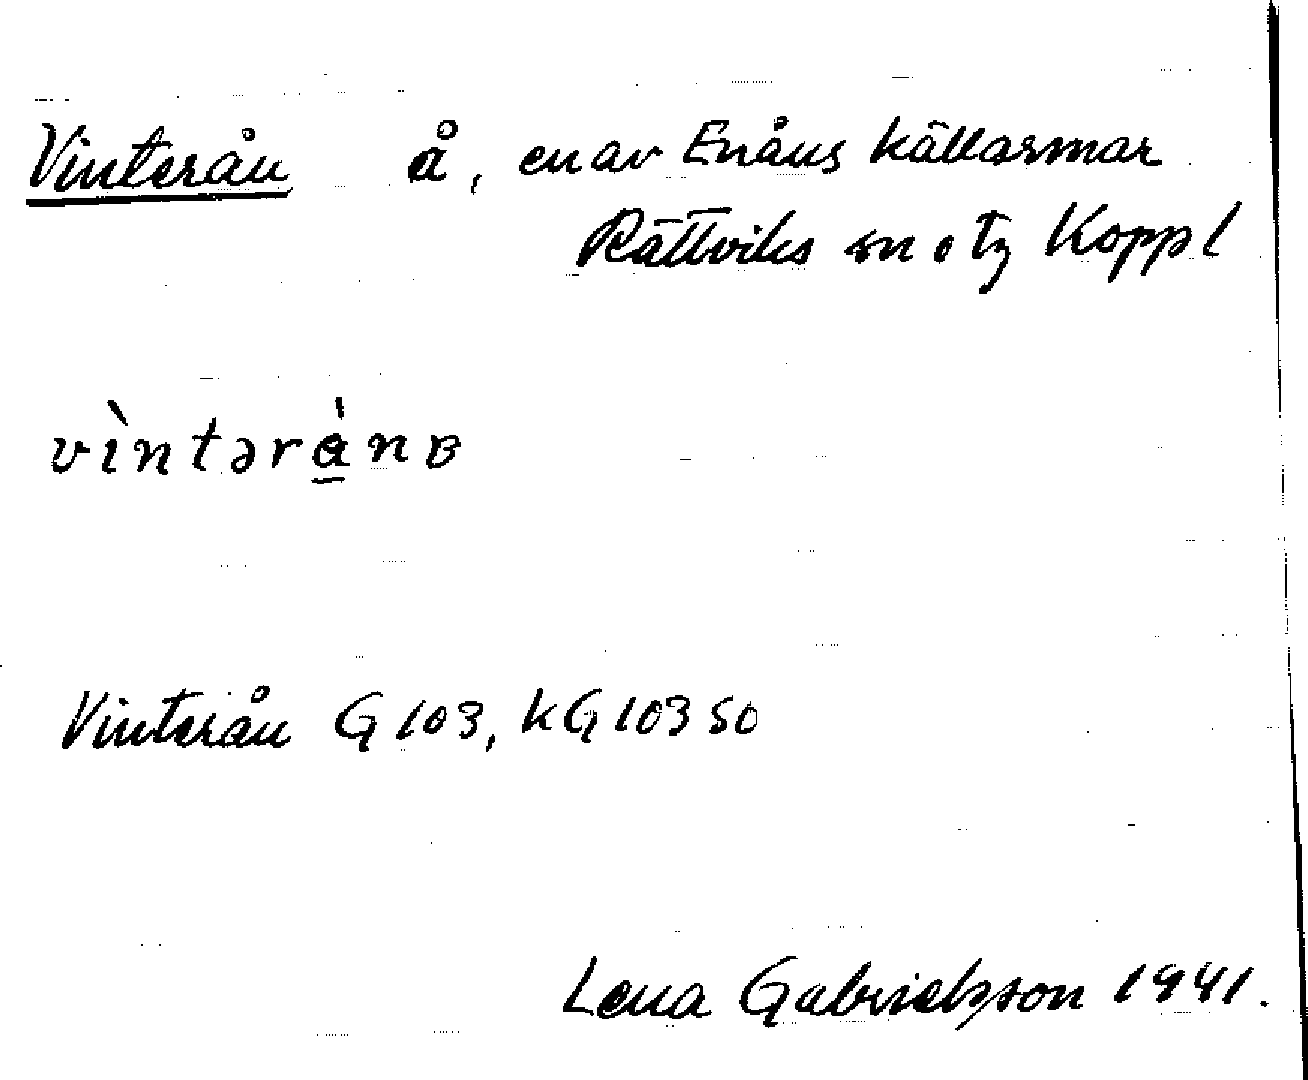 Vinterån å, en av Enåns källarmar
Rättviks sn o tg Koppl
vìntərànɐ
Vinterån G 103, kG 103 50
Lena Gabrielsson 1941.